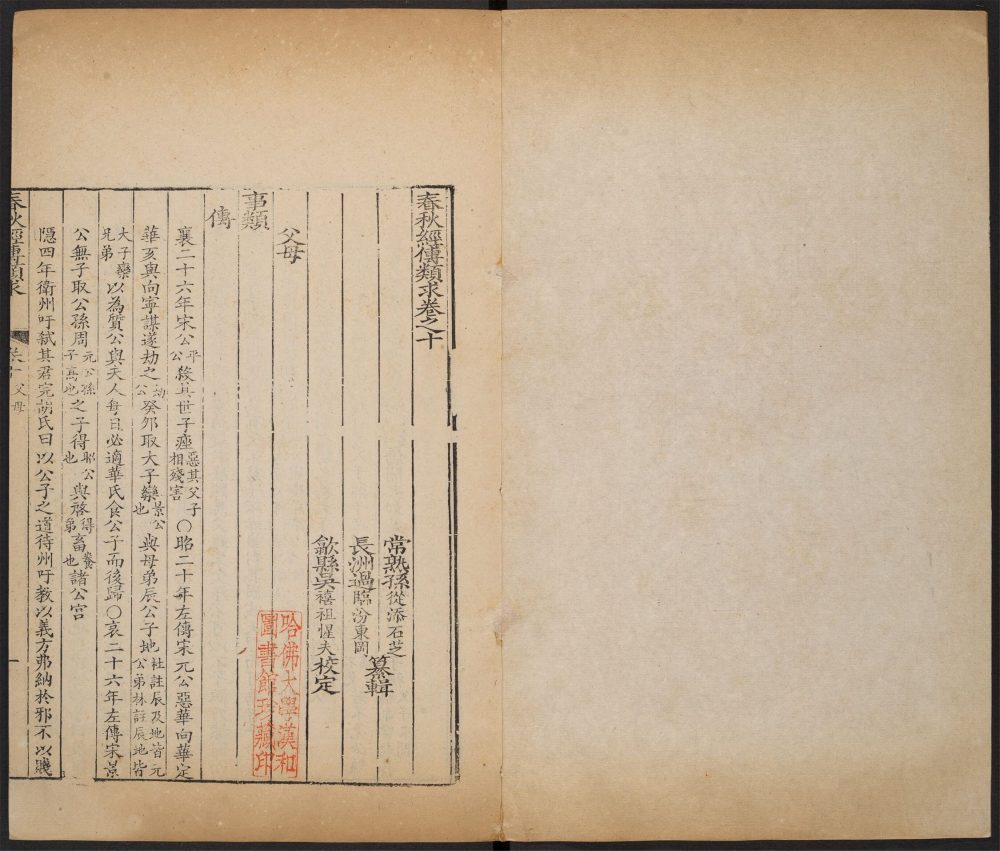 春秋經傳類求卷之十
常熟孫從添石芝
長洲過臨汾東岡 纂輯
歙縣吳禧祖惺夫校定
父母
事類
傳
襄二十六年宋公平公殺其世子痤惡其父子相殘害○昭二十年左傳宋元公惡華向華定
華亥與向寧謀遂劫之劫公癸卯取大子欒景公也與母弟辰公子地杜註辰及地皆元公弟林註辰地皆
大子欒兄弟以為質公與夫人每日必適華氏食公子而後歸○哀二十六年左傳宋景
公無子取公孫周元公孫子高也之子得昭公也與啓得弟畜養也諸公宮
隱四年衛州吁弒其君完胡氏曰以公子之道待州吁教以義方弗納於邪不以賤
春秋經傳類求
卷十
父母
一
哈佛大學漢和
圖書館珍藏印